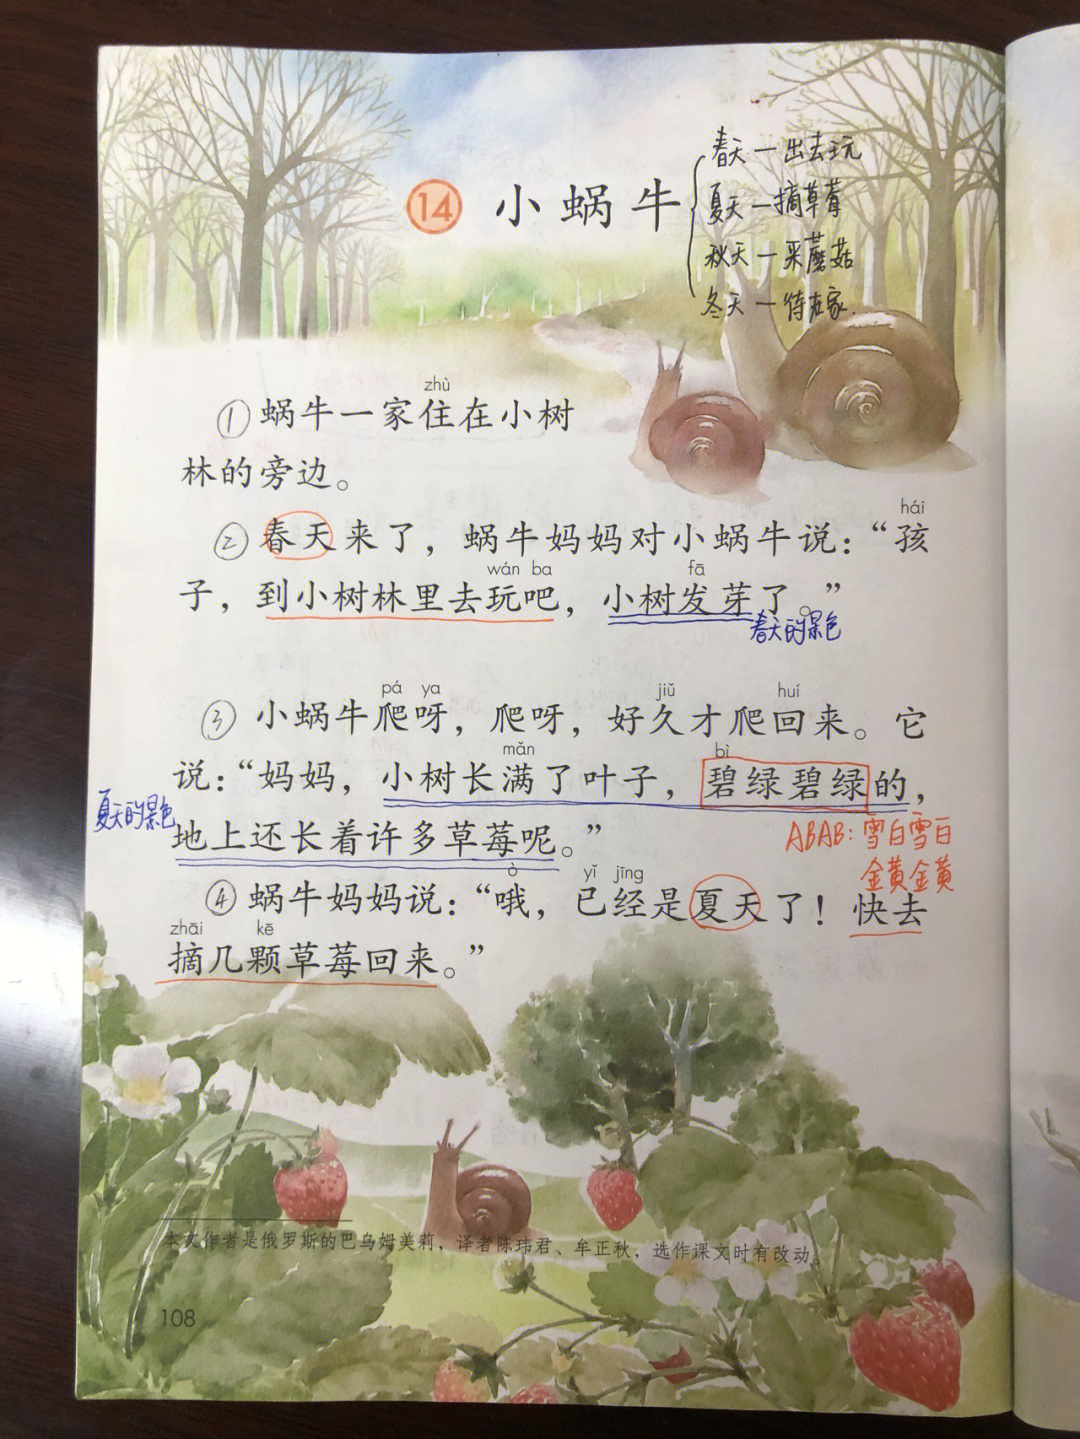 14 小蜗牛
春天—出去玩
夏天—摘草莓
秋天—采蘑菇
冬天—待在家.
zhù
① 蜗牛一家住在小树
林的旁边。
hái
② 春天来了，蜗牛妈妈对小蜗牛说：“孩
wán ba fā
子，到小树林里去玩吧，小树发芽了。”
春天的景色
pá ya jiǔ huí
③ 小蜗牛爬呀，爬呀，好久才爬回来。它
mǎn bì
说：“妈妈，小树长满了叶子，碧绿碧绿的，
夏天的景色
地上还长着许多草莓呢。”
ABAB：雪白雪白
金黄金黄
ò yǐ jīng
④ 蜗牛妈妈说：“哦，已经是夏天了！快去
zhāi kē
摘几颗草莓回来。”
本文作者是俄罗斯的巴乌姆美莉，译者陈玮君、牟正秋，选作课文时有改动。
108